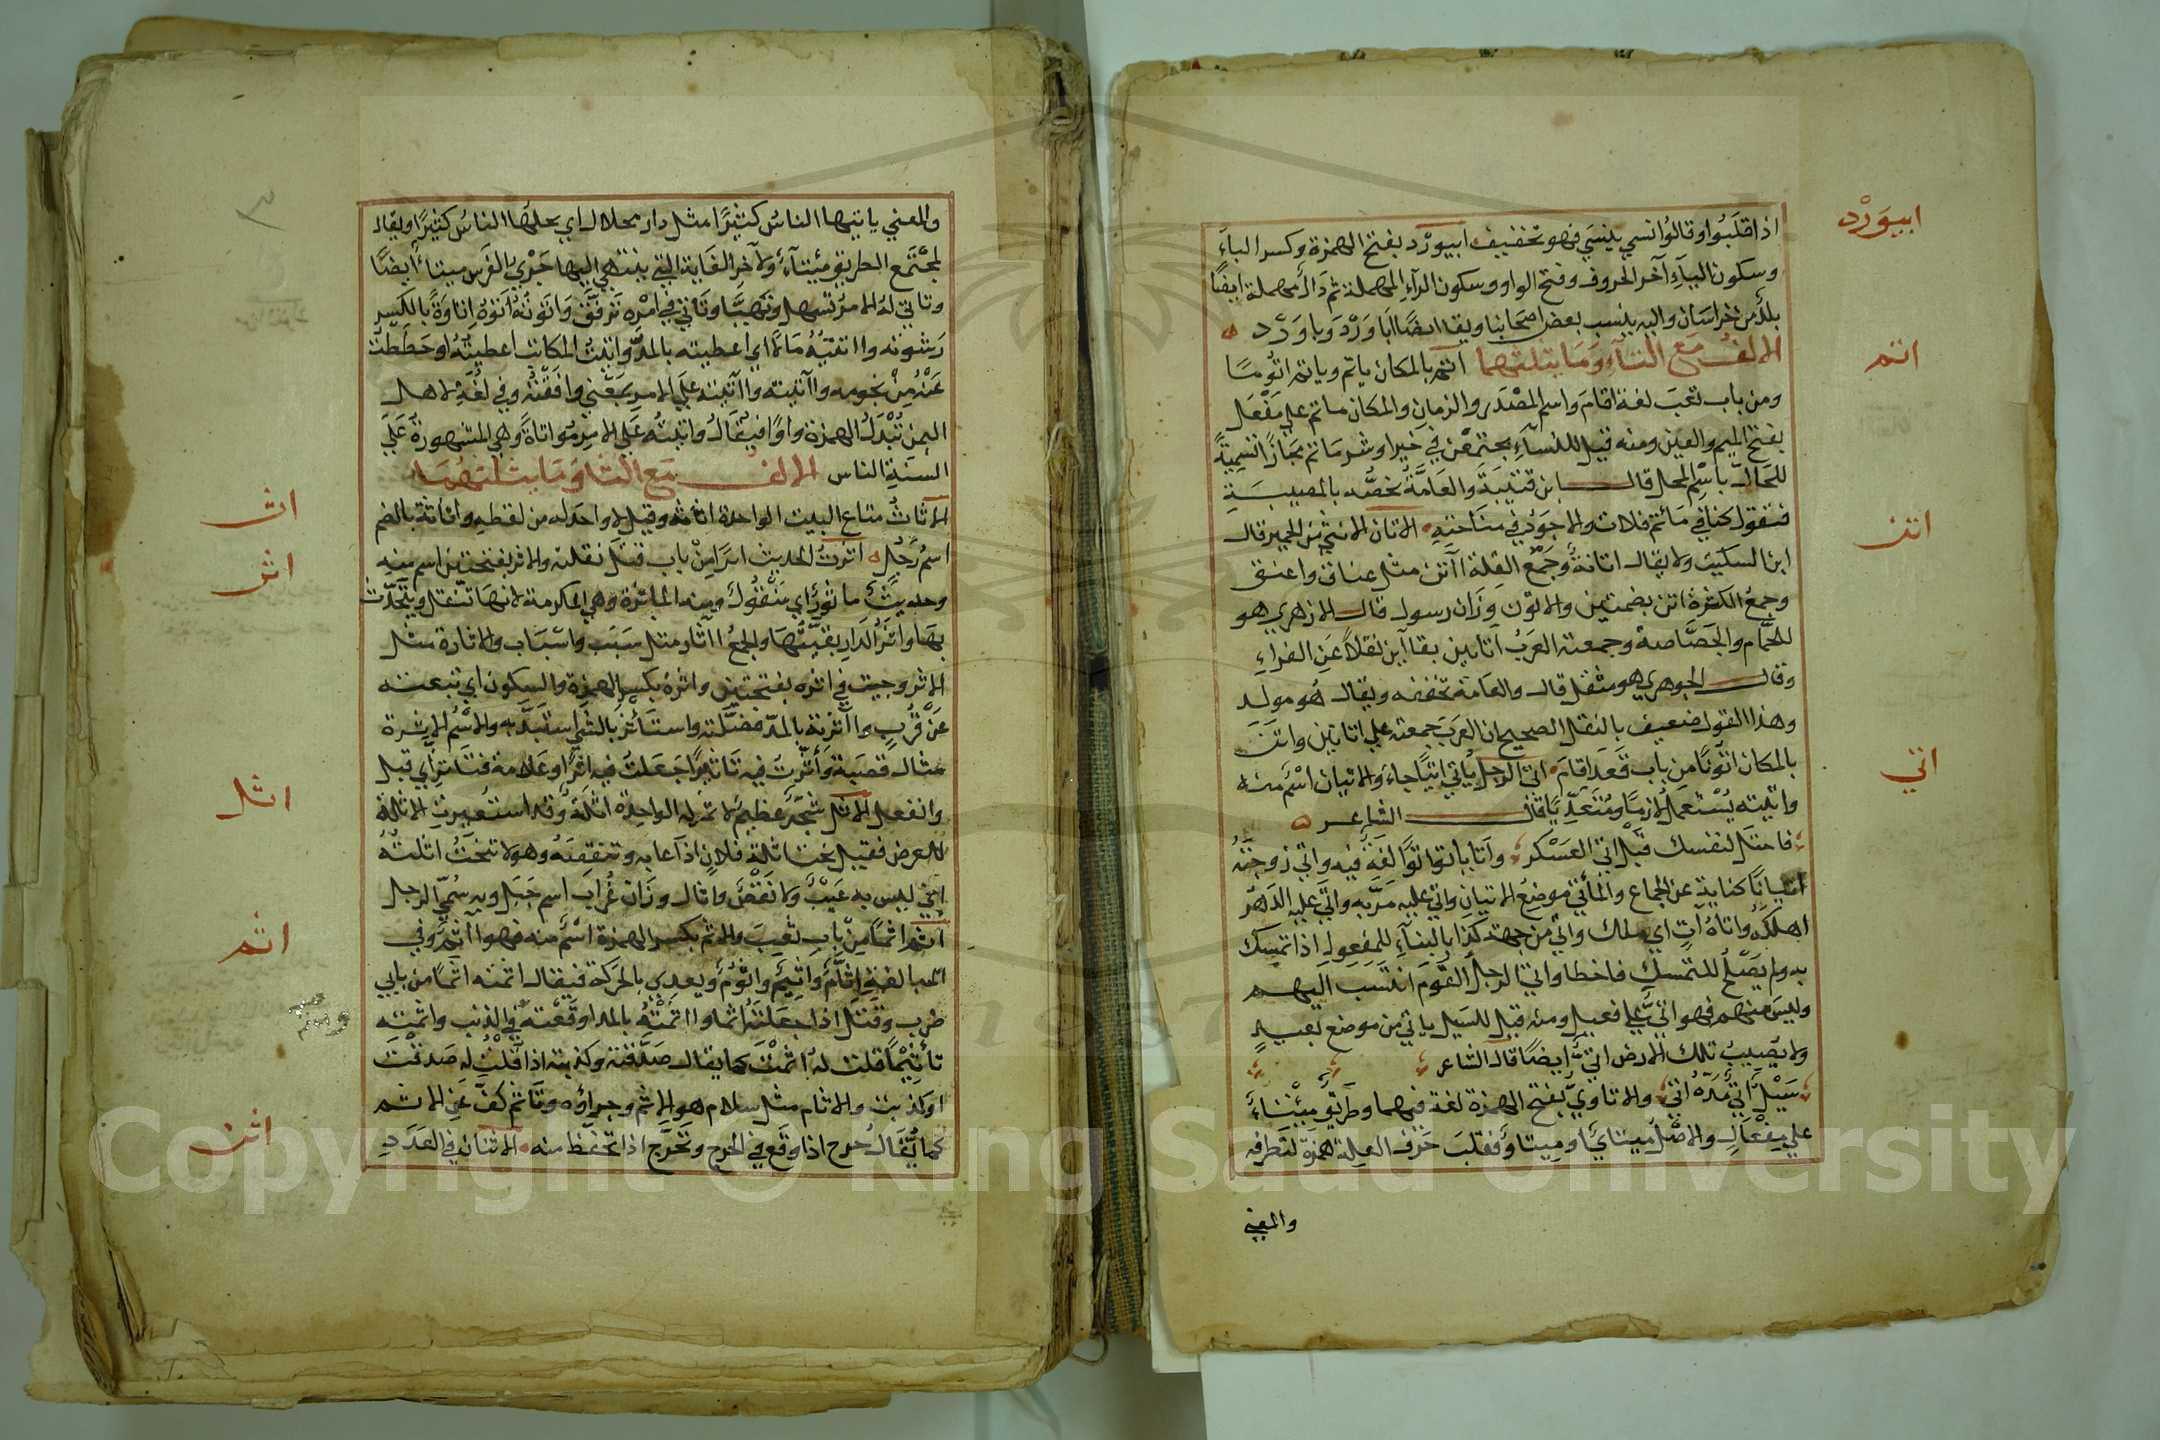 ابيوَرْد
اذا قلَبُوا وقالوُا نسي ينسَي فهو تخفيف ابيورْد بفتح الهمزة وكسر الباَءِ
وسكون اليآءِ آخر الحروف وفتح الواو وسكون الرآءِ المهملة ثم دَال مهملة ايضًا
بلدٌ من خراسَان واليه ينسب بعض اصحابنا ويقا ايضًا ابَاوَرْدَ وباوَرْد
الالفُ مَع التآءِ وَمَا يثلثهما اتم بالمكان ياتم وياتم اتُومًا
اتم
ومن باب تعبَ لغة اقامَ واسم المصْدَر والزمانِ والمكان ماتم علي مَفْعَل
بفتح الميم والعين ومنه قيل للنسآءِ يجتمعْن في خيرٍ او شر مَاتم مجَازًا تسميةً
للحَالّ باسْمِ المحل قال ابن قتيبَةَ والعَامَّةُ تخصُّه بالمصيبَةِ
فتقول كنا في مَأتم فلان والاجوَدُ في منَاحَتِهِ الاتان الانثي من الحمير قال
اتن
ابنُ السكيت ولا يقال اتانةٌ وجَمْعُ القلة اآتن مثل عناق واعنق
وجمعُ الكثرة اتن بضمتين والاتون وَزَان رسول قال الازهري هو
للحَمَّام والجَصَّاصَة وجمعته العرَبُ اتاتين بتا آين نقلاً عَنِ الفراءِ
وقال الجوهري هو مثقل قال والعَامة تخففه ويقال هُو مولد
وهذا القول ضعيف بالنقل الصحيح ان العرَبَ جمعته علي اتاتين واتَنَ
بالمكان اتُونًا من باب قَعَدَ اقَامَ اتي الرجلُ يَاتي اتيًا جاءَ والاتيان اسْمٌ منه
اتي
واتيته يُسْتعملُ لازمًا ومُتعَدِّيًا قال الشاعر
فاحتل لنفسك قبْلَ اتي العَسْكر واتَا ياتوا اتوًا لغةٌ فيه واتي زوجتَهُ
اتيانًا كناية عن الجماع والمأتي موضعُ الاتيان واتي عليه مَرَّبه واتي عليه الدَهْرُ
اهلكَه واتاهُ آتٍ اي ملك واتي من جهة كذا بالبنآءِ للمفعول اذا تمسك
به ولم يَصْلُح للتمسك فاخطا واتي الرجلُ القوْمَ انتسَب اليهم
وليسَ منهم فهو اتيٌّ علي فعيل ومنه قيل للسَيل ياتي من موضع بعيدٍ
ولا يُصِيبُ تلك الارض اتيٌّ ايضًا قال الشاعر
سَيْلٌ اتيٌّ مَدَّهُ اتيُّ والاتاويُّ بفتح الهمزة لغة فيهما وطَريقٌ مِيتاءٌ
علي مِفعَالِ والاصْلُ ميتايٌ او مِيتاوٌ فقلبَ حَرْف العلة همَزة لتطرفه
والمعني
والمعني ياتيها الناسُ كثيرًا مثل دار محلال اي يحلها الناسُ كثيرًا ويقال
لمجْتَمع الطريقِ مِيتآءٌ ولآخِر الغايَة التي ينتهي اليها جَرْيُ الفَرَسِ ميتاءٌ ايضًا
وتاتي لهُ الامرُ تسهل وتهيَّا وتَاتي في امْرِه تَرفَّقَ وَاتَوتُهُ اتوُهُ اِتاوَةً بالكَسرِ
رَشوته واآتيتُهُ مَالاً اي اعطيته بالمدّ واتيتُ المكاتب اعطيتُهُ او حَطَطْتُ
عَنْهُ مِنْ نجومِه واآتيته واآتيته علي الامر بمَعْني وافَقْتهُ وفي لغَةٍ لاهل
اليمن تُبْدَلُ الهمزة واوًا فيُقَالُ واتيتُه عَلي الامرِ مُوَاتاةً وهي المشهورَة عَلَي
السنَةِ الناس الالف مَع الثا ومَا يثلثهُمَا
الاثاثُ متَاع البيت الواحدة اثاثه وقيل لا واحد له من لفظِهِ واثاثة بالضم
اث
اسمُ رَجُل اثرتُ الحديث اثرًا مِنْ باب قتل نقلته والاثر بفتحتين اسم منه
اثر
وحديثٌ ماثورٌ اي منقُولٌ ومنه الماثرة وهي المكرمة لانهَا تنقل ويتحدّث
بهَا واثرُ الدَار بقيَّتُهَا والجمعُ اآثار مثل سَبَب واسْبَاب والاثارة مثل
الاثر وجيت في اثره بفتحتين واثره بكسرِ الهمزة والسكون اي تبعته
عَنْ قُرُبٍ واآثرته بالمدّ فضلته واستاثرَ بالشي استبَدَّ بِه والاسْمُ الاثرة
مثال قصَبة وَأثّرتَ فيه تَاثيرًا جعَلتُ فيه اثرًا وعَلامة فتَاثر اي قبل
وانفعل الاثل شجَر عظيمٌ لا ثمَر له الواحِدة اثلةٌ وقد استُعيرتِ الاثلة
اثل
للعرض فقيل نحت اثلة فلانٍ اذا عابه وتنقصَهُ وهو لا تنحَتُ اثلتُهُ
اي ليس به عَيْبٌ ولا نَقْصٌ واثال وزَان غُرابٍ اسم جَبَل وبه سُمّي الرجل
اثم اثمًا مِنْ بابِ تعِبَ والاثم بكسر الهمزة اسْمٌ منه فهوا آثمٌ وفي
اثم
المبالغةِ اثّامٌ واثيمٌ واثومٌ ويعدي بالحركة فيقال اثمته اثمًا من بابي
ضرب وقتل اذا جعَلتَهُ اثما واآثمتُهُ بالمد اوقعْته في الذنب واثمته
تأثيمًا قلت له اثمْتَ كما يقال صَدَّقته وكذبته اذا قلتَ له صَدقتَ
او كذبت والاثام مثل سلام هو الاثم وجزاؤه وتَاثم كفَّ عَنِ الاثم
كما يُقَالُ حرج اذا وقَع في الحرج وتحَرَّج اذا تحفظ منه الاثنان في العَدَدِ
اثن
Copyright © King Saud University